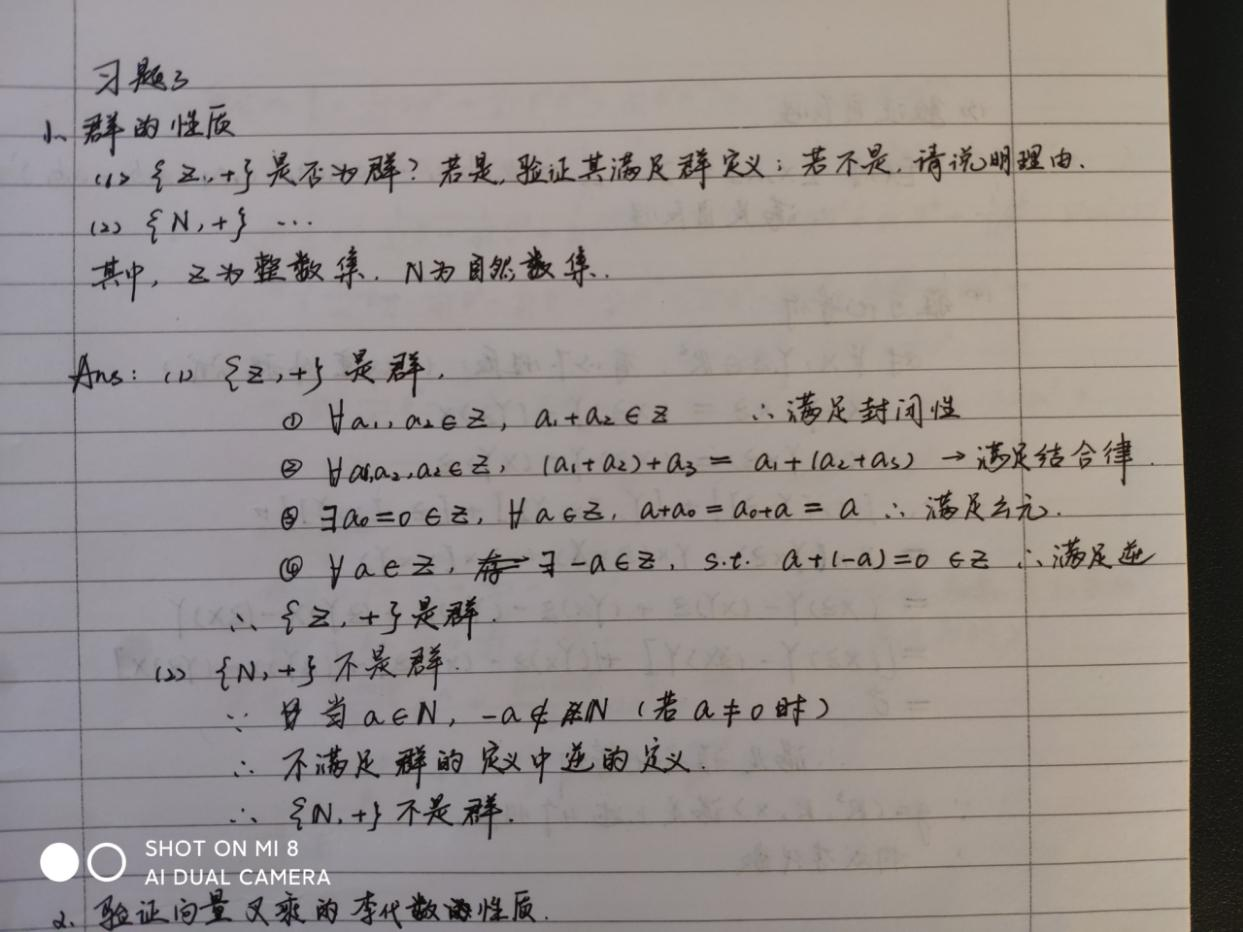 习题3
1、群的性质
(1) {Z,+}是否为群？若是,验证其满足群定义；若不是,请说明理由.
(2) {N,+} ...
其中, Z为整数集. N为自然数集.
Ans: (1) {Z,+}是群.
① ∀a₁,a₂∈Z, a₁+a₂∈Z ∴满足封闭性
② ∀a₁,a₂,a₂∈Z, (a₁+a₂)+a₃ = a₁+(a₂+a₃) → 满足结合律.
③ ∃a₀=0∈Z, ∀a∈Z, a+a₀=a₀+a=a ∴满足幺元.
④ ∀a∈Z, ∃-a∈Z, s.t. a+(-a)=0∈Z ∴满足逆
∴ {Z,+}是群.
(2) {N,+}不是群.
∵ 当a∈N, -a∉N (若a≠0时)
∴ 不满足群的定义中逆的定义.
∴ {N,+}不是群.
SHOT ON MI 8
AI DUAL CAMERA
2、验证向量叉乘的李代数的性质.